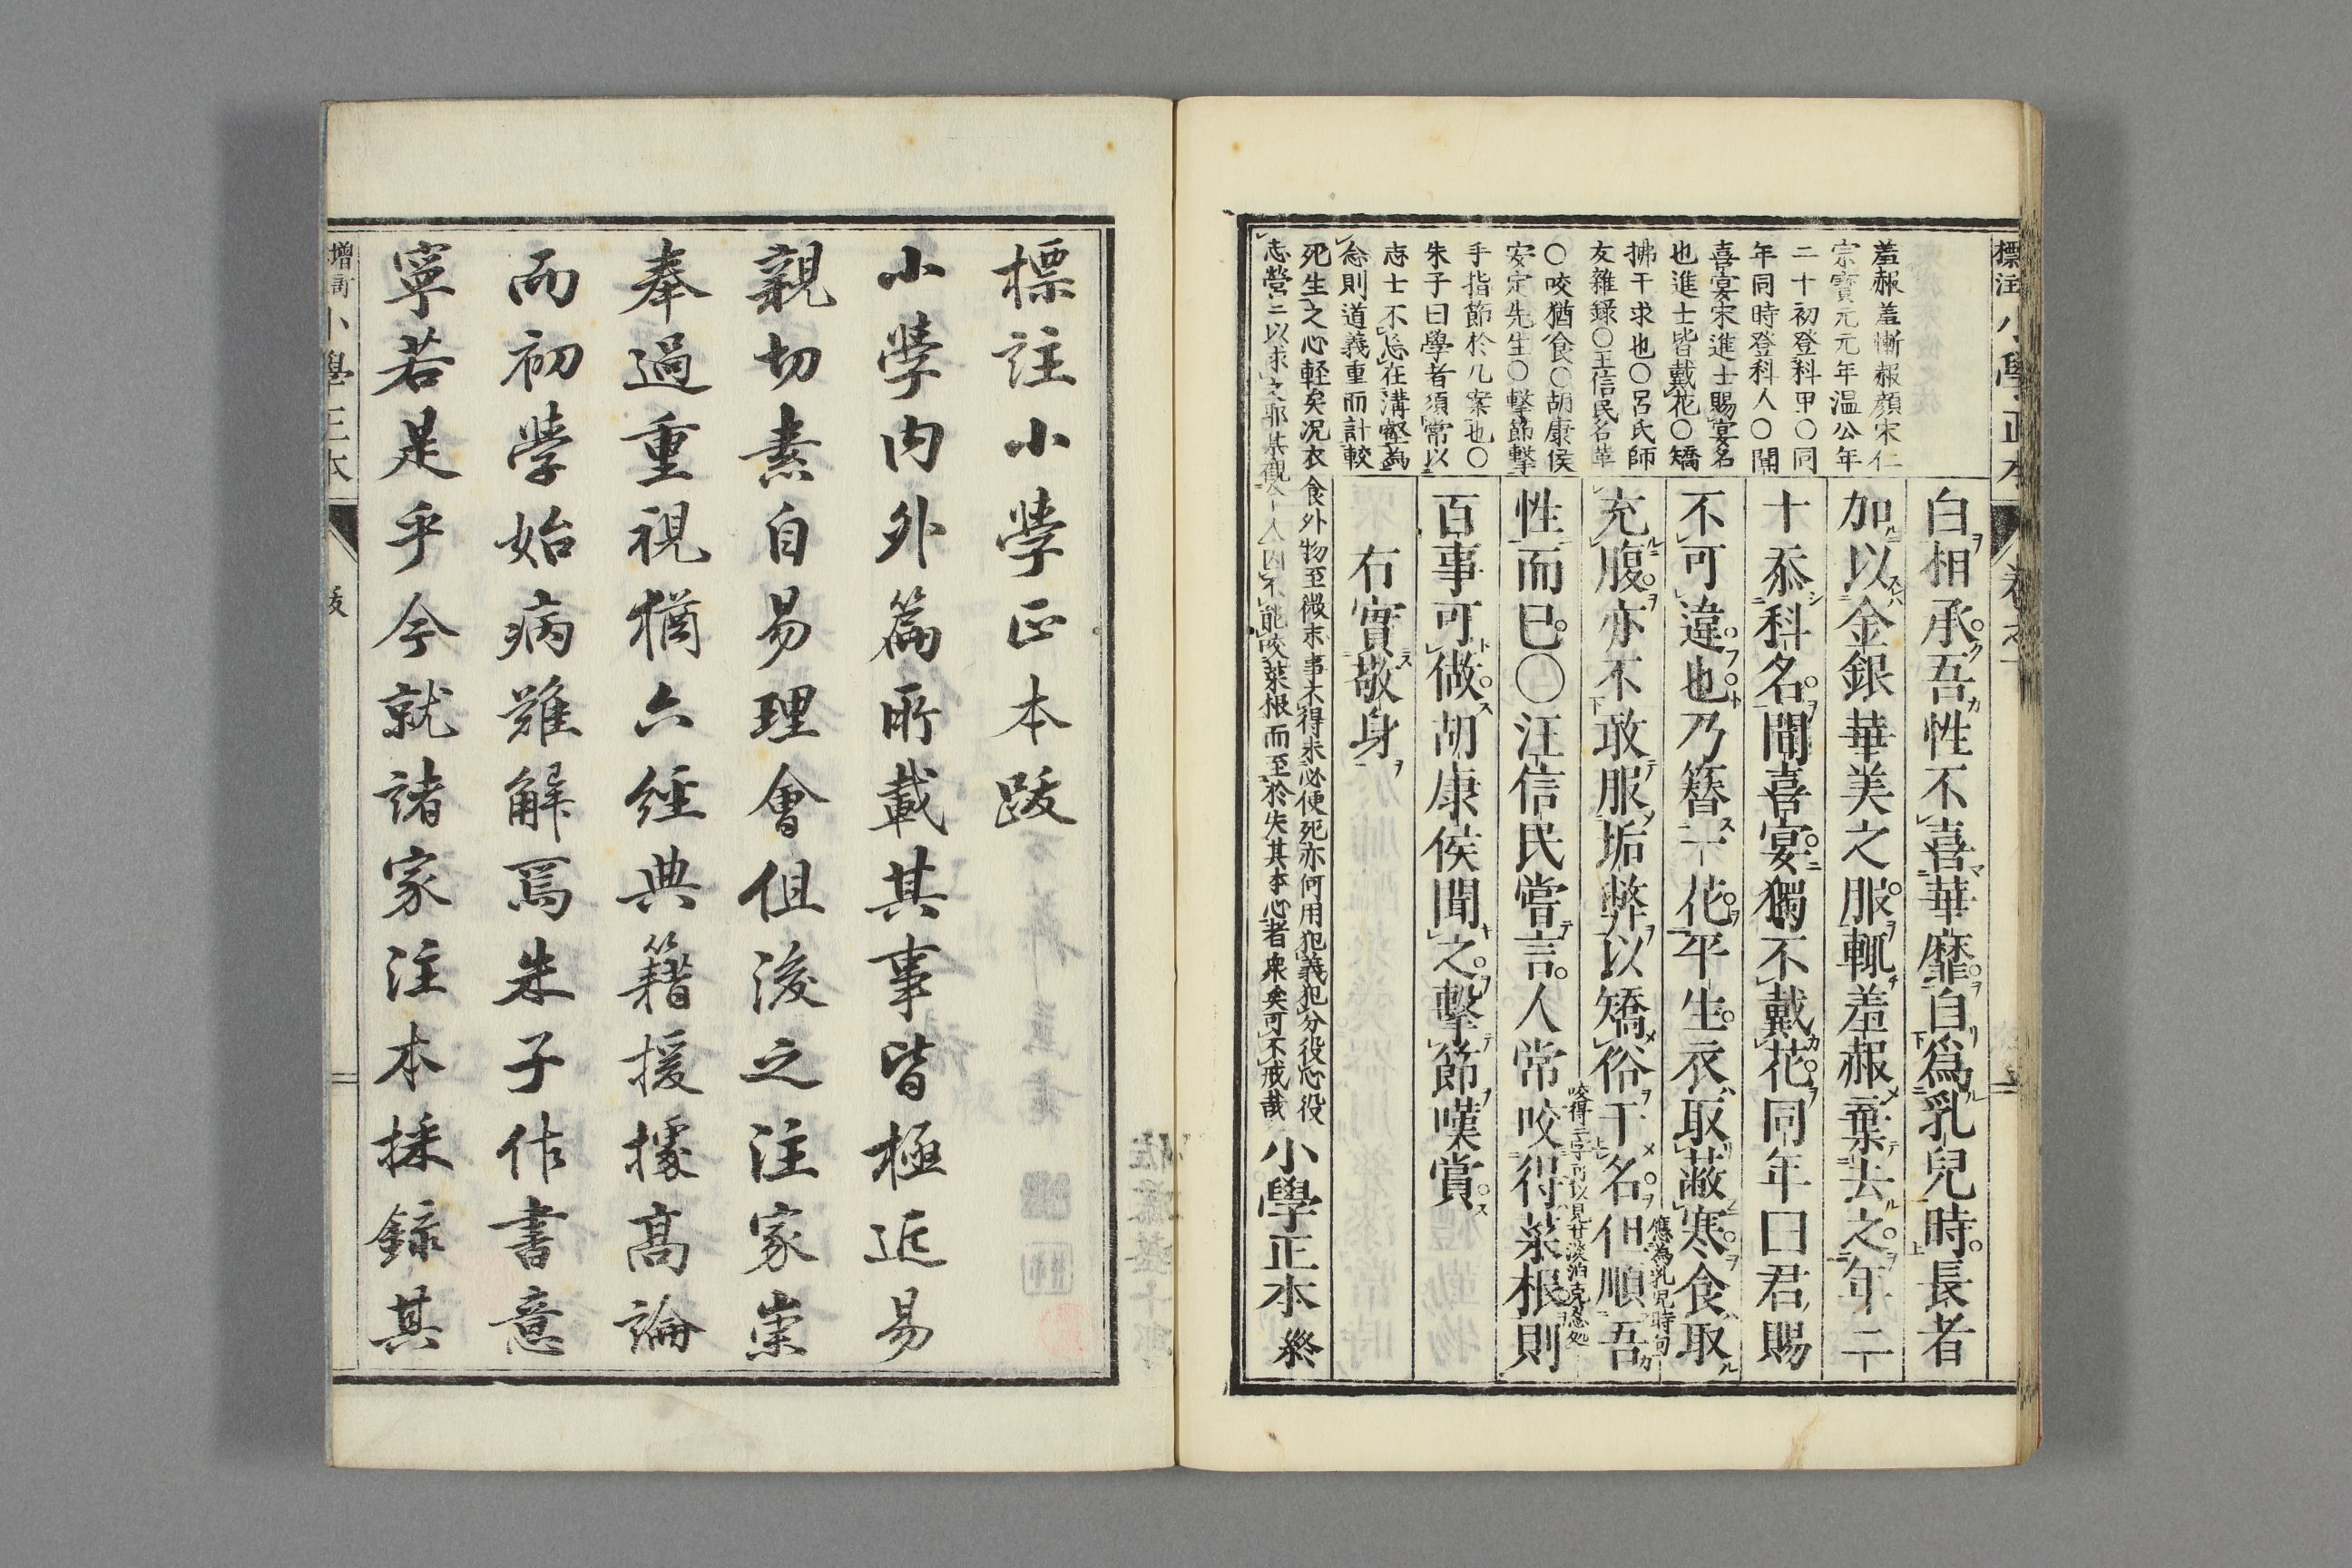 白相承吾性不喜華靡自爲乳兒時長者
加以金銀華美之服輒羞赧棄去之年二
十忝科名聞喜宴獨不戴花同年曰君賜
不可違也乃簪一花平生衣取蔽寒食取
充腹亦不敢服垢弊以矯俗干名但順吾
性而已○汪信民嘗言人常咬得菜根則
百事可做胡康侯聞之擊節嘆賞
右實敬身
羞赧羞慚赧顔宋仁
宗寳元元年温公年
二十初登科甲○同
年同時登科人○聞
喜宴宋進士賜宴名
也進士皆戴花○矯
拂干求也○呂氏師
友雜録○王信民名革
○咬猶食○胡康侯
安定先生○擊節擊
手指節於几案也○
朱子曰學者須常以
志士不忘在溝壑為
念則道義重而計較
死生之心軽矣况衣食外物至微末事不得未必便死亦何用犯義犯分役心役
志營〻以求之耶某觀今人因不能咬菜根而至於失其本心者衆矣可不戒哉
小學正本 終
標註小學正本跋
小學内外篇所載其事皆極近易
親切素自易理會但後之注家崇
奉過重視猶六經典籍援據高論
而初學始病難解焉朱子作書意
寧若是乎今就諸家注本採録其